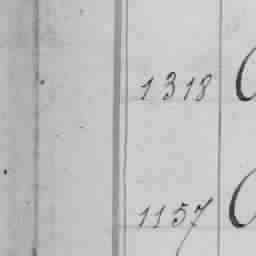 1318
1157